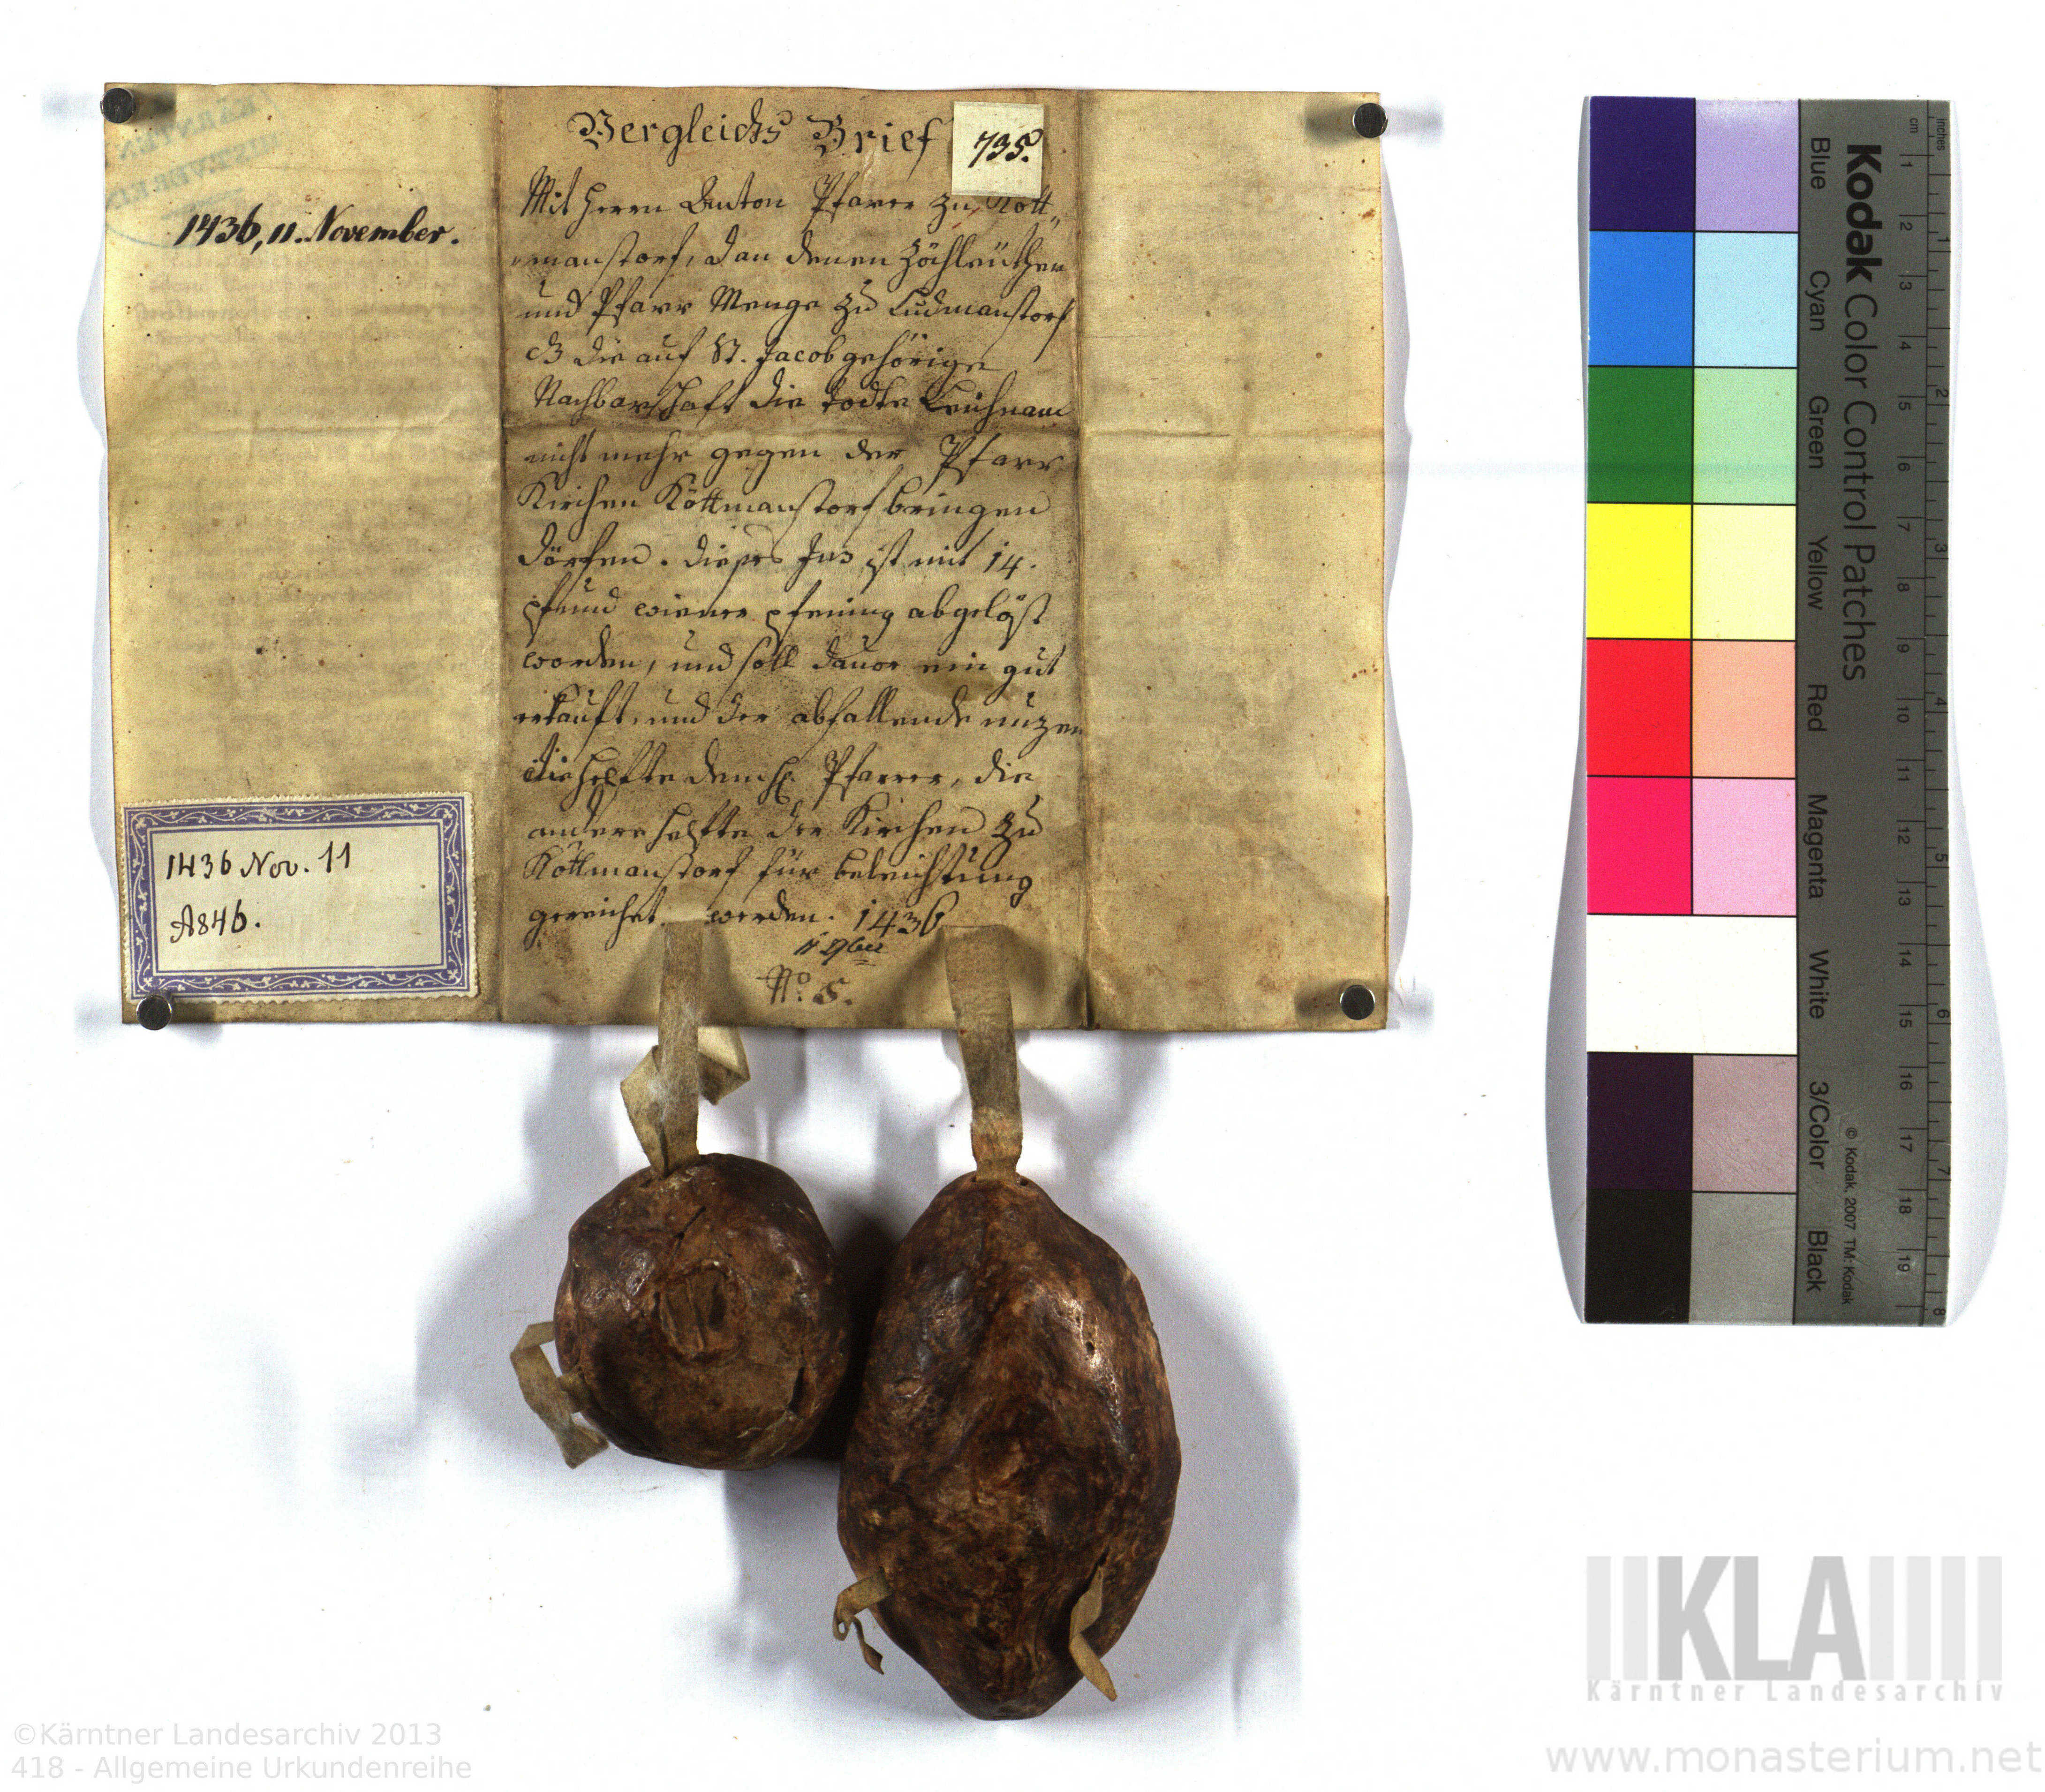 Vergleichs Brief
735.
Mit Herrn Anton Pfarer zu Kött„
manstorf, dan denen Zöchleüthen
und Pfarr Menge zu Ludmanstorf
die auf St. Jacob gehörige
Nachbarschaft die todte Leichnam
nicht mehr gegen der Pfarr
Kirchen Köttmanstorf bringen
dörfen. dieses Jus ist mit 14.
pfund wiener pfening abgelöst
worden, und soll dauor ein gut
erkauft, und der abfallende nuzen
die helfte dem H. Pfarrer, die
andere helfte der Kirchen zu
Köttmanstorf für beleichtung
gereichet werden. 1436
11 9ber
No. 5.
1436, 11. November.
1436 Nov. 11
A 846.
Kodak Color Control Patches
Blue Cyan Green Yellow Red Magenta White 3/Color Black
© Kodak, 2007 TM: Kodak
cm 1 2 3 4 5 6 7 8 9 10 11 12 13 14 15 16 17 18 19
inches 1 2 3 4 5 6 7 8
KLA
Kärntner Landesarchiv
©Kärntner Landesarchiv 2013
418 - Allgemeine Urkundenreihe
www.monasterium.net